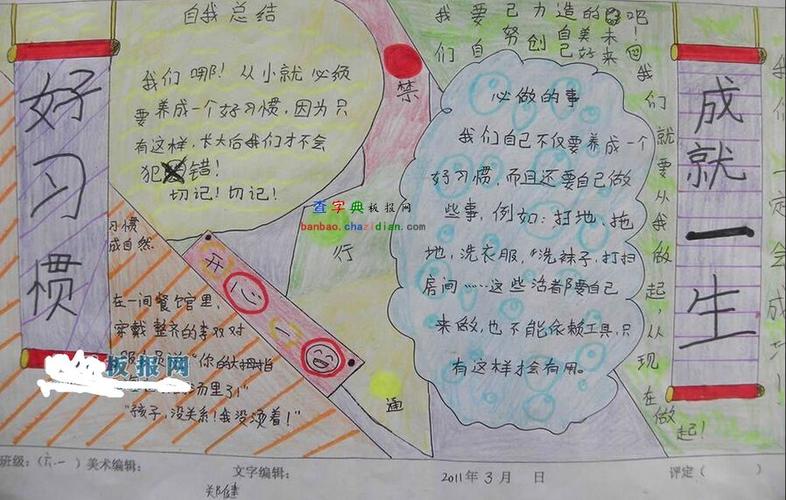 好习惯
自我总结
我们哪！从小就必须
要养成一个好习惯，因为只
有这样，长大后我们才不会
犯错！
切记！切记！
习惯
成自然.
在一间餐馆里，
穿戴整齐的李双对
"你的大拇指
汤里了！"
"孩子，没关系！我没烫着！"
开心一
禁
行
通
查字典板报网
banbao.chazidian.com
板报网
我要己力造的吧！
努创自美未
们自己好来
必做的事
我们自己不仅要养成一个
好习惯，而且还要自己做
些事，例如：扫地，拖
地，洗衣服，洗袜子，打扫
房间……这些活者都要自己
来做，也不能依赖工具，只
有这样才会有用。
我们就要从我做起，从现在做起！
成就一生
我们一定会成功！
班级：（六.一）美术编辑：
文字编辑：
2011年3月 日
评定（ ）